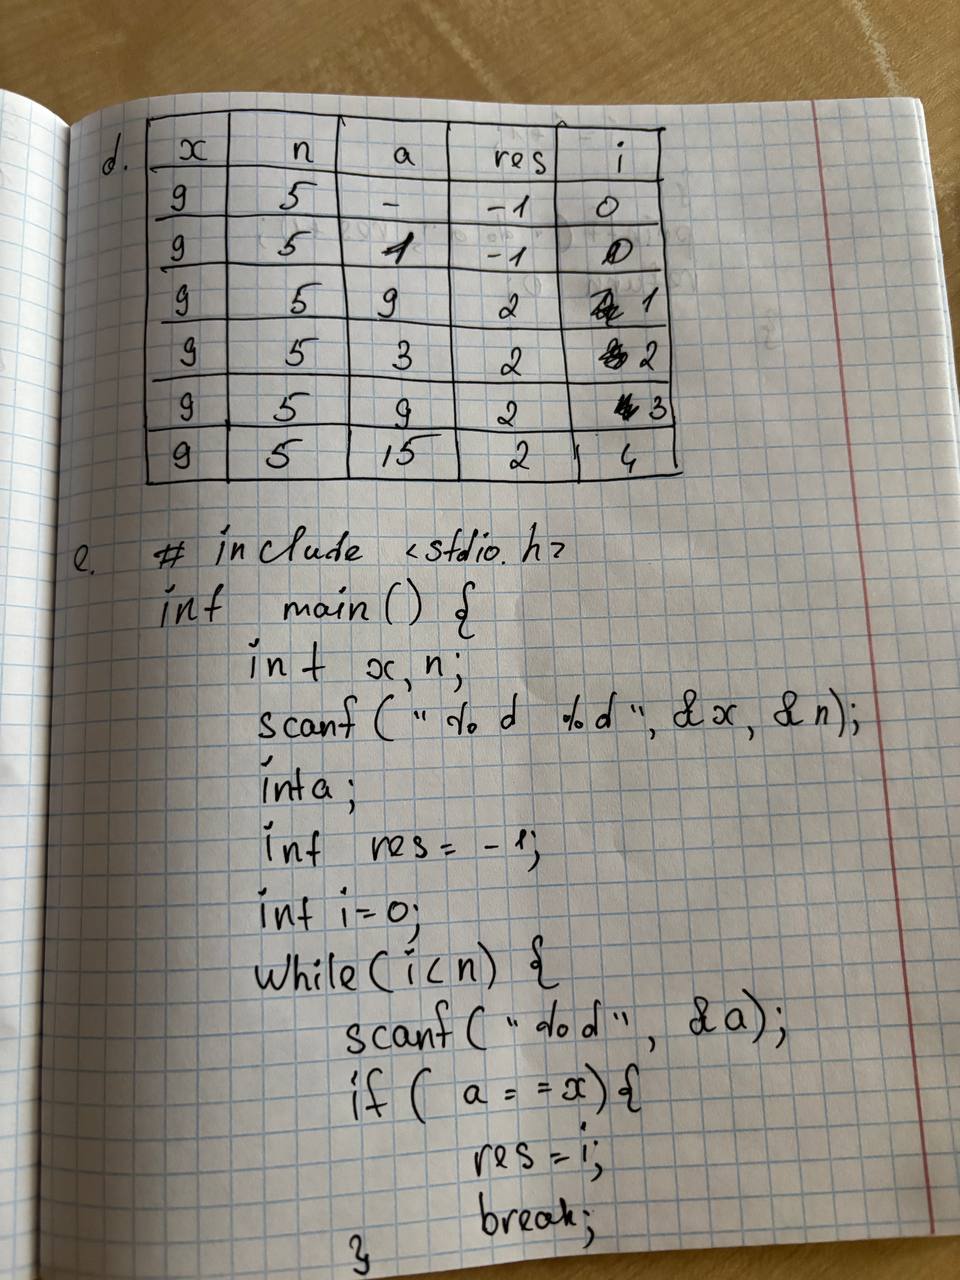 d. x n a res i
9 5 - -1 0
9 5 1 -1 0
9 5 9 2 1
9 5 3 2 2
9 5 9 2 3
9 5 15 2 4
e. # include <stdio.h>
int main() {
int x, n;
scanf ("%d %d", &x, &n);
int a;
int res = -1;
int i=0;
while(i<n) {
scanf("%d", &a);
if ( a == x) {
res = i;
break;
}